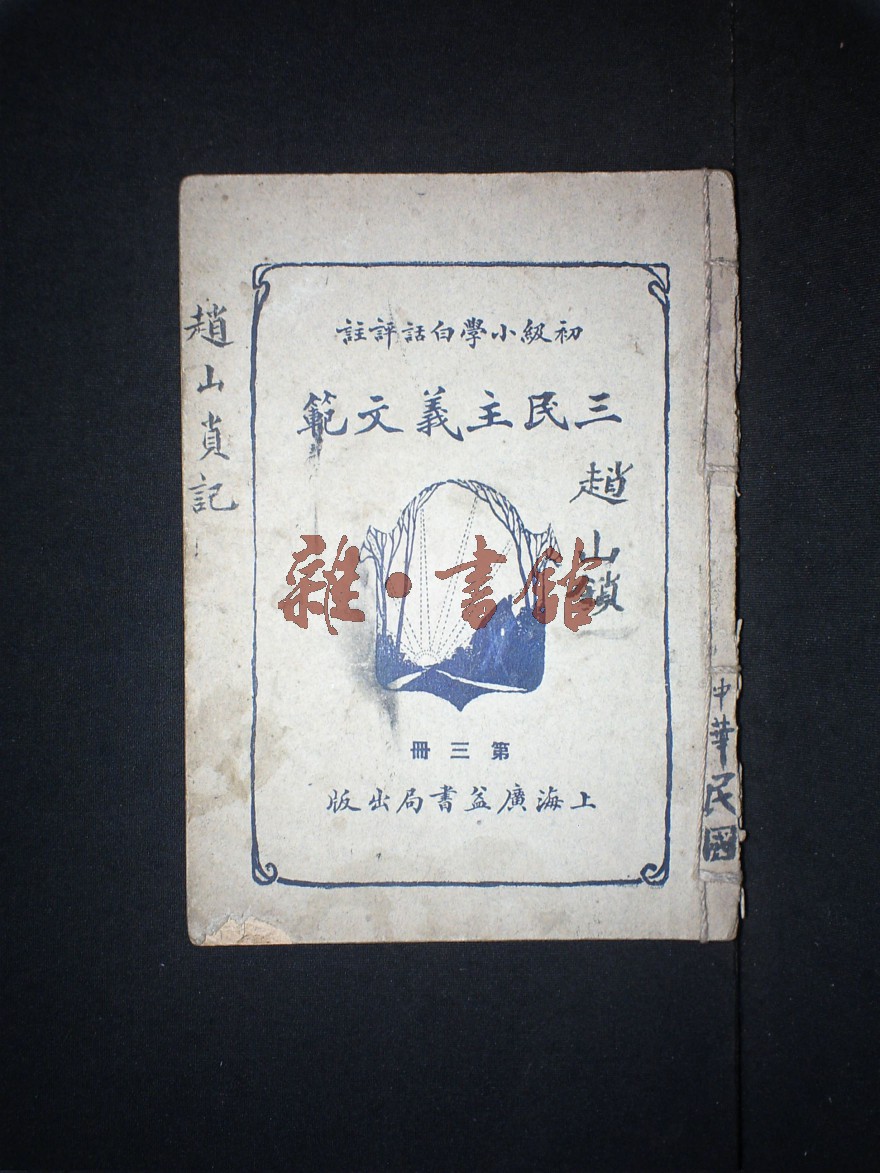 初級小學白話評註
三民主義文範
趙山鎖
雜·書館
第三冊
上海廣益書局出版
趙山貞記
中華民國